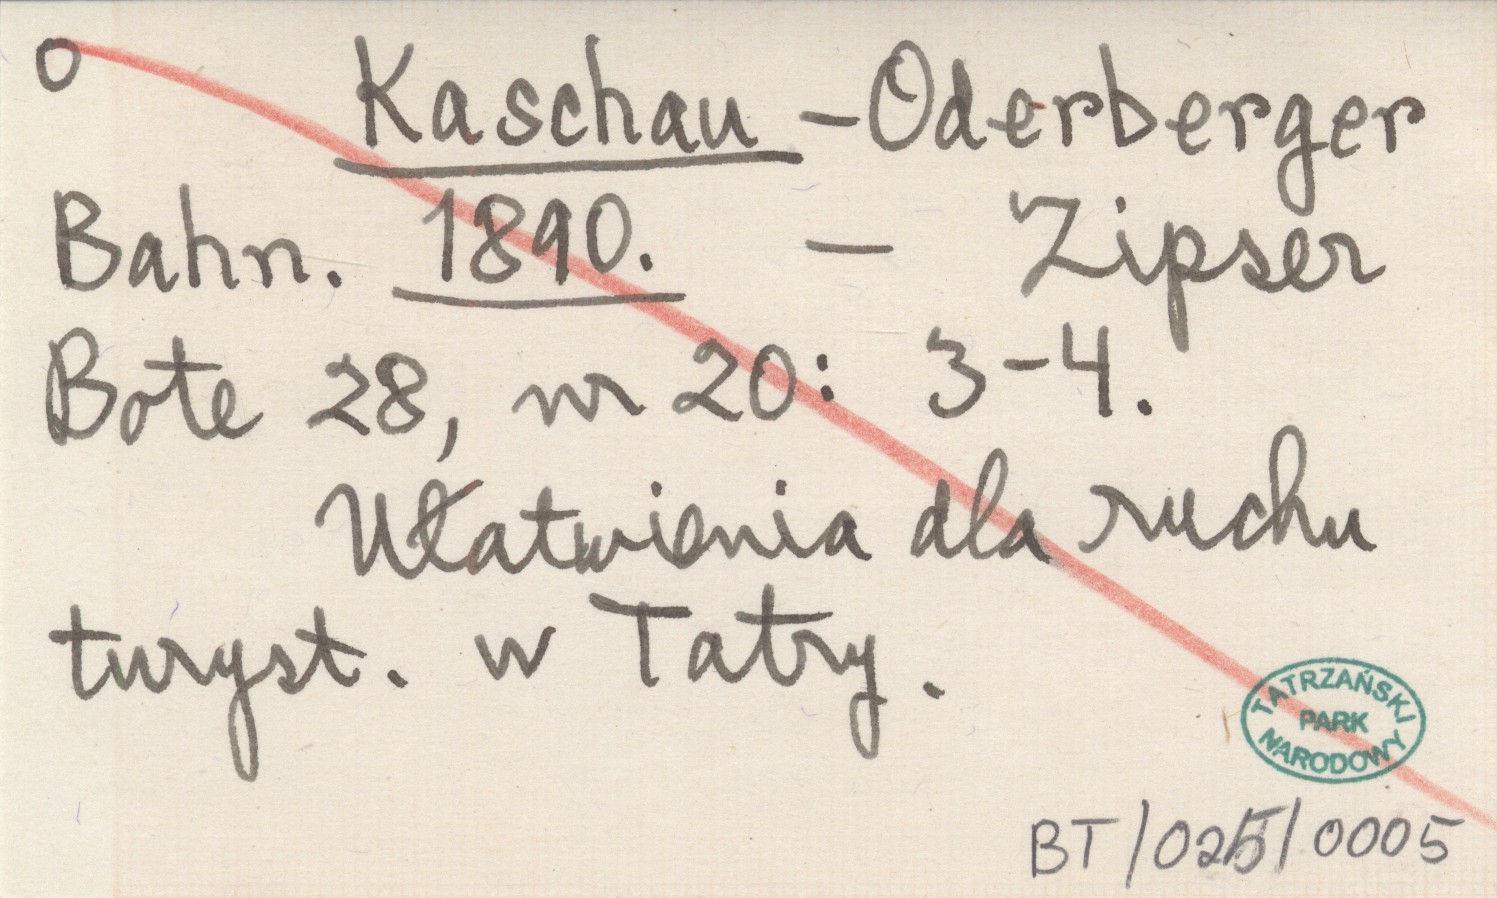 O Kaschau - Oderberger
Bahn. 1890. - Zipser
Bote 28, nr 20: 3-4.
Ułatwienia dla ruchu
turyst. w Tatry.
TATRZAŃSKI
PARK
NARODOWY
BT/025/0005